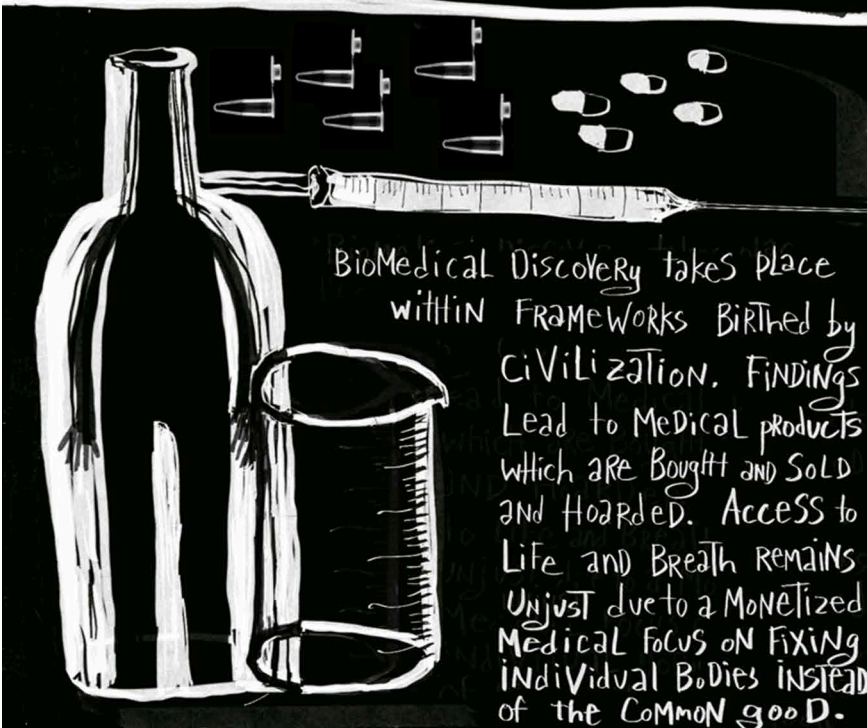 BioMedical Discovery takes place
within Frameworks Birthed by
Civilization. Findings
Lead to Medical products
which are Bought and Sold
and Hoarded. Access to
Life and Breath Remains
Unjust due to a Monetized
Medical Focus on Fixing
individual Bodies instead
of the Common good.